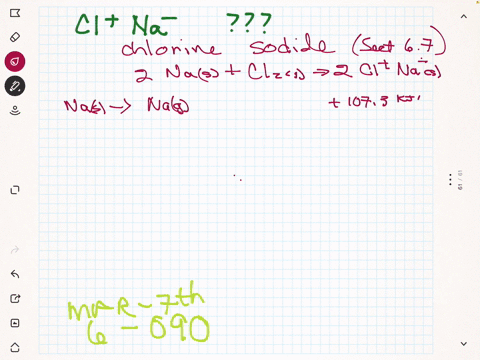 Cl⁺ Na⁻ ???
chlorine sodide (Sect 6.7)
2 Na(s) + Cl₂(g) → 2 Cl⁺ Na⁻(s)
Na(s) → Na(g) +107.3 KJ
MAR - 7th
6 - 090